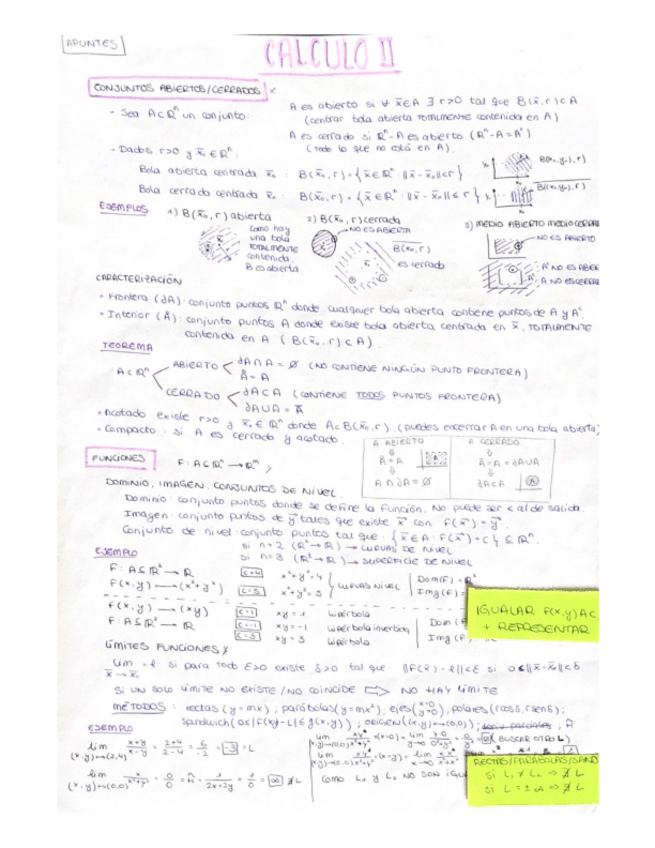 APUNTES
CALCULO II
CONJUNTOS ABIERTOS/CERRADOS
- Sea A⊂ℝⁿ un conjunto:
A es abierto si ∀ x̄∈A ∃ r>0 tal que B(x̄,r)⊂A
(centrar bola abierta TOTALMENTE contenida en A)
A es cerrado si ℝⁿ-A es abierto (ℝⁿ-A=Aᶜ)
(todo lo que no está en A).
- Dados r>0 y x̄₀∈ℝⁿ:
Bola abierta centrada x̄₀ : B(x̄₀,r)={x̄∈ℝⁿ: ||x̄-x̄₀||<r}
Bola cerrada centrada x̄₀ : B(x̄₀,r)={x̄∈ℝⁿ: ||x̄-x̄₀||≤r}
B((x₀,y₀),r)
B((x₀,y₀),r)
EJEMPLOS
1) B(x̄₀,r) abierta
como hay
una bola
TOTALMENTE
contenida,
B es abierta
2) B(x̄₀,r) cerrada
NO ES ABIERTA
B(x̄₀,r)
es cerrado
3) MEDIO ABIERTO MEDIO CERRA
NO ES ABIERTO
Aᶜ NO ES ABIER
A NO ES CERRA
CARACTERIZACIÓN
• Frontera (∂A): conjunto puntos ℝⁿ donde cualquier bola abierta contiene puntos de A y Aᶜ.
• Interior (Å): conjunto puntos A donde existe bola abierta centrada en x̄, TOTALMENTE
contenida en A (B(x̄,r)⊂A).
TEOREMA
A⊂ℝⁿ
ABIERTO
∂A∩A=∅ (NO CONTIENE NINGÚN PUNTO FRONTERA)
Å=A
CERRADO
∂A⊂A (CONTIENE TODOS PUNTOS FRONTERA)
∂A∪A=Ā
• Acotado existe r>0 y x̄₀∈ℝⁿ donde A⊂B(x̄₀,r). (puedes encerrar A en una bola abierta)
• Compacto: si A es cerrado y acotado.
A ABIERTO
Å=A
A∩∂A=∅
A CERRADO
Ā=A=∂A∪A
∂A⊂A
FUNCIONES
F: A⊆ℝⁿ → ℝᵐ,
DOMINIO, IMAGEN, CONJUNTOS DE NIVEL.
Dominio: conjunto puntos donde se define la función. No puede ser < al de salida.
Imagen: conjunto puntos de ȳ tales que existe x̄ con F(x̄)=ȳ.
Conjunto de nivel: conjunto puntos tal que: {x̄∈A: F(x̄)=C} ⊆ ℝⁿ.
si n=2 (ℝ²→ℝ) → CURVAS DE NIVEL
si n=3 (ℝ³→ℝ) → SUPERFICIE DE NIVEL
EJEMPLO
F: A⊆ℝ² → ℝ
F(x,y) → (x²+y²)
C=4 x²+y²=4
C=3 x²+y²=3
CURVAS NIVEL
Dom(F)=ℝ²
Img(F)=
F(x,y) → (xy)
F: A⊆ℝ² → ℝ
C=1 xy=1 hipérbola
C=-1 xy=-1 hipérbola invertida
C=3 xy=3 hipérbola
Dom (F
Img (F)
IGUALAR F(x,y) A C
+ REPRESENTAR
LÍMITES FUNCIONES
Lim = l si para todo ε>0 existe δ>0 tal que ||F(x̄)-l||<ε si 0≤||x̄-x̄₀||<δ
x̄→x̄₀
SI UN SOLO LÍMITE NO EXISTE/NO COINCIDE ⇒ NO HAY LÍMITE
MÉTODOS: rectas (y=mx); parábolas (y=mx²); ejes (x=0 y=0); polares (rcosδ,rsenδ);
sandwich (0≤|F(x,y)-L|≤g(x,y)); ORIGEN((x,y)→(0,0));
EJEMPLO
lim (x,y)→(2,4) x+y/x-y = 2+4/2-4 = 6/-2 = -3 = L
lim (x,y)→(0,0) x/x²+y² = 0/0 = 1/2x+2y = 1/0 = ∞ ∄L
(BUSCAR OTRO L)
COMO L₁ Y L₂ NO SON IGUA
RECTAS/PARÁBOLAS/SAND
SI L₁ ≠ L₂ ⇒ ∄ L
SI L=±∞ ⇒ ∄ L